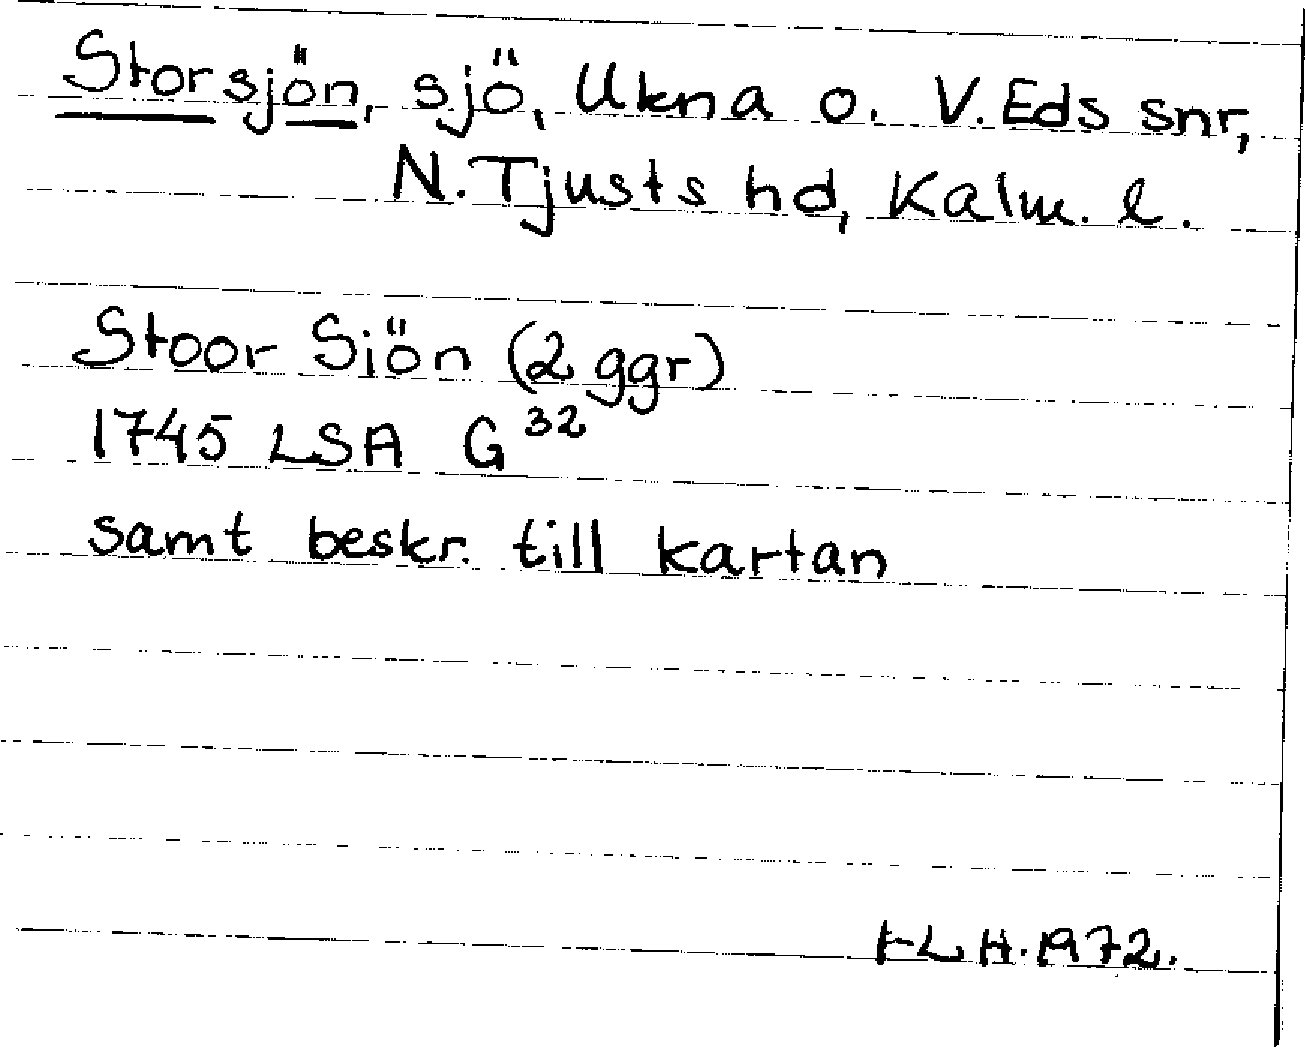 Storsjön, sjö, Ukna o. V. Eds snr,
N. Tjusts hd, Kalm. l.
Stoor Siön (2 ggr)
1745 LSA G 32
samt beskr. till kartan
H. 1972.